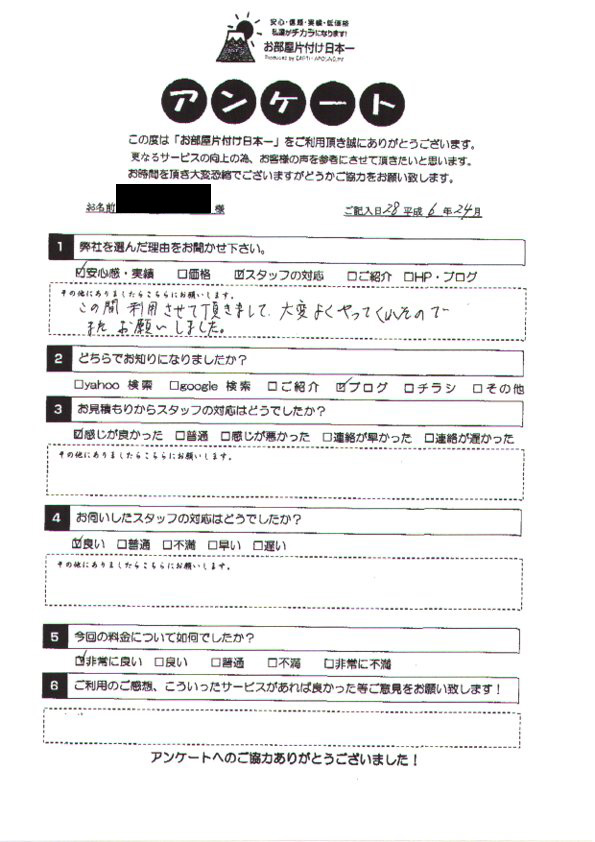 安心・信頼・実績・低価格
私達がチカラになります!
お部屋片付け日本一
アンケート
この度は「お部屋片付け日本一」をご利用頂き誠にありがとうございます。
更なるサービスの向上の為、お客様の声を参考にさせて頂きたいと思います。
お時間を頂き大変恐縮でございますがどうかご協力をお願い致します。
お名前 様 ご記入日28平成6年24月
1 弊社を選んだ理由をお聞かせ下さい。
☑安心感・実績 □価格 ☑スタッフの対応 □ご紹介 □HP・ブログ
その他にありましたらこちらにお願いします。
この間利用させて頂きまして、大変よくやってくれたので
またお願いしました。
2 どちらでお知りになりましたか?
□yahoo 検索 □google 検索 □ご紹介 ☑ブログ □チラシ □その他
3 お見積もりからスタッフの対応はどうでしたか?
☑感じが良かった □普通 □感じが悪かった □連絡が早かった □連絡が遅かった
その他にありましたらこちらにお願いします。
4 お伺いしたスタッフの対応はどうでしたか?
☑良い □普通 □不満 □早い □遅い
その他にありましたらこちらにお願いします。
5 今回の料金について如何でしたか?
☑非常に良い □良い □普通 □不満 □非常に不満
6 ご利用のご感想、こういったサービスがあれば良かった等ご意見をお願い致します!
アンケートへのご協力ありがとうございました!